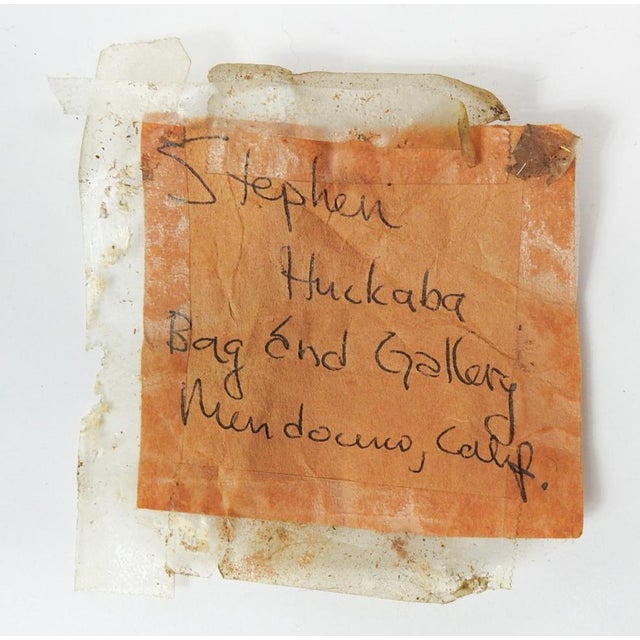 Stephen
Huckaba
Bag End Gallery
Mendocino, Calif.